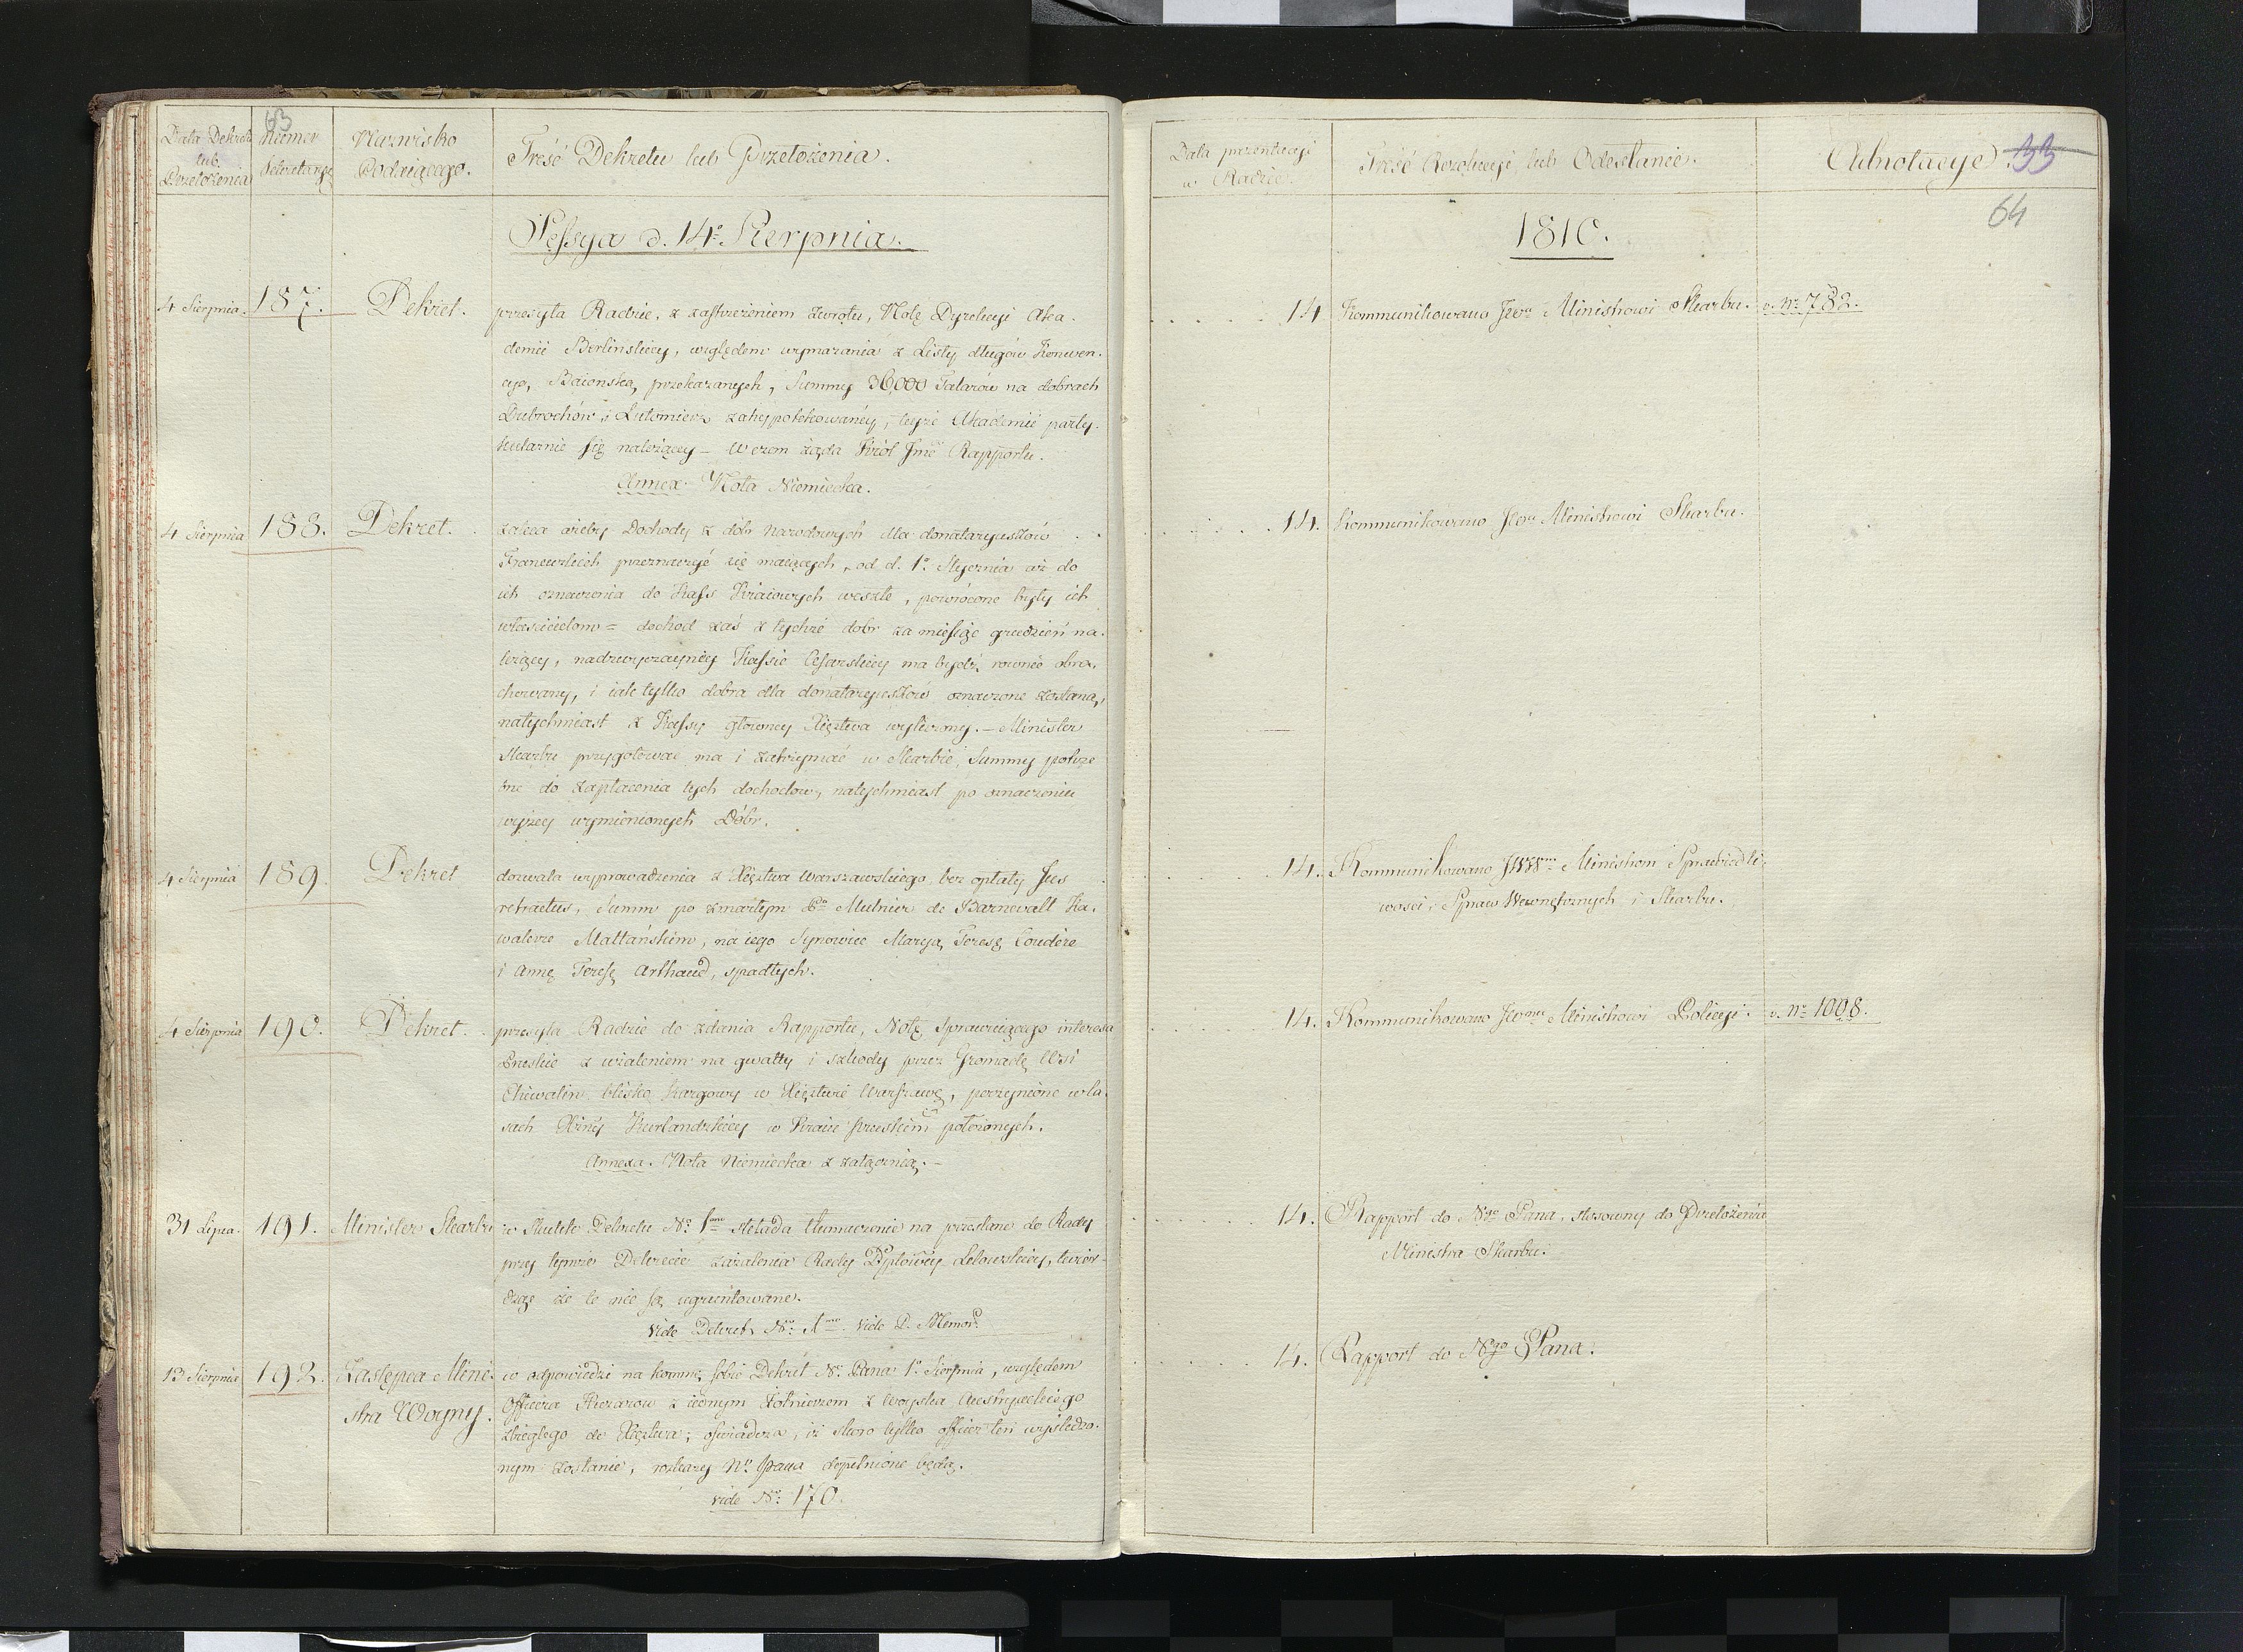 63
Data Dekretu
lub
Przełożenia
Numer
Sekretarza
Nazwisko
Podaiącego.
Treść Dekretu lub Przełożenia.
Sessya d. 14º Sierpnia.
4 Sierpnia. 187. Dekret.
przesyła Radzie, z zastrzeżeniem zwrotu, Notę Dyrekcyi Aka-
demii Berlinskiey, względem wymazania z Listy długów Konwen-
cyą Baionską przekazanych, Summy 36000 Talarów na dobrach
i Lutomiersk zahypotekowaney, teyże Akademii party-
kularnie się należącey - w czem żąda Król Jmć Rapportu.
Annex. Nota Niemiecka.
4 Sierpnia 188. Dekret.
zaleca ażeby Dochody z dóbr Narodowych dla donataryuszów
Francuzkich przeznaczyć się maiących, od d. 1º Stycznia aż do
ich oznaczenia do Kass Kraiowych weszłe, powrócone były ich
właścicielom = dochod zaś z tychże dobr za miesiąc grudzień na-
leżący, nadzwyczayney Kassie Cesarskiey ma bydź rownie obra-
chowany, i iak tylko dobra dla donataryuszów oznaczone zostaną,
natychmiast z Kassy głowney Xięztwa wyliczony. - Minister
Skarbu przygotować ma i zatrzymać w Skarbie, Summy potrze
bne do zapłacenia tych dochodow, natychmiast po oznaczeniu
wyżey wymienionych Dóbr.
4 Sierpnia 189. Dekret
dozwala wyprowadzenia z Xięztwa Warszawskiego, bez opłaty Jus
retractus, Summ po zmarłym Mulnier de Barnewalt Ka-
walerze Maltańskim, na iego Synowice Maryą Teresę Coudère
i Annę Teresę Arthaud, spadłych.
4 Sierpnia 190. Dekret.
przesyła Radzie do zdania Rapportu, Notę Sprawuiącego interesa
Pruskie z użaleniem na gwałty i szkody przez Gromadę Wsi
Chwalim blisko Kargowy w Xięztwie Warszawę, poczynione w la-
sach Xżnéy Kurlandzkiey w Kraiu pruskim położonych.
Annexa. Nota Niemiecka z załącznią. -
31 Lipca. 191. Minister Skarbu
w Skutek Dekretu Nº 1mo składa tłumaczenie na przesłane do Rady
przy tymże Dekrecie zażalenia Rady Dyptowéy Lelowskiey, twier-
dząc że te nie są ugruntowane.
vide Dekret Nº 1mo. vide D. Memor.
13 Sierpnia 192. Zastępca Mini-
stra Woyny.
w odpowiedzi na kommę sobie Dekrét No. Pana 1º Sierpnia, względem
Officera z iednym żołnierzem z woyska Austryackiego
zbiegłego do Xięztwa; oświadcza, iż skoro tylko officer ten wyśledzo-
nym zostanie, rozkazy No. Pana dopełnione będą.
vide Nº 170.
Data prezentacyi
w Radzie.
Treść Rezolucyi lub Odesłanie.
Adnotacye.
33
64
1810.
14 Kommunikowano Jwu Ministrowi Skarbu. v. Nº 782.
14. Kommunikowano Jwu Ministrowi Skarbu.
14. Kommunikowano JWWm Ministrom Sprawiedli-
wosci, Spraw Wewnętrznych i Skarbu.
14. Kommunikowano Jwmu Ministrowi Policyi. v. Nº 1008.
14. Rapport do Nºgo Pana, stosowny do Przełożenia
Ministra Skarbu.
14. Rapport do Nºgo Pana.